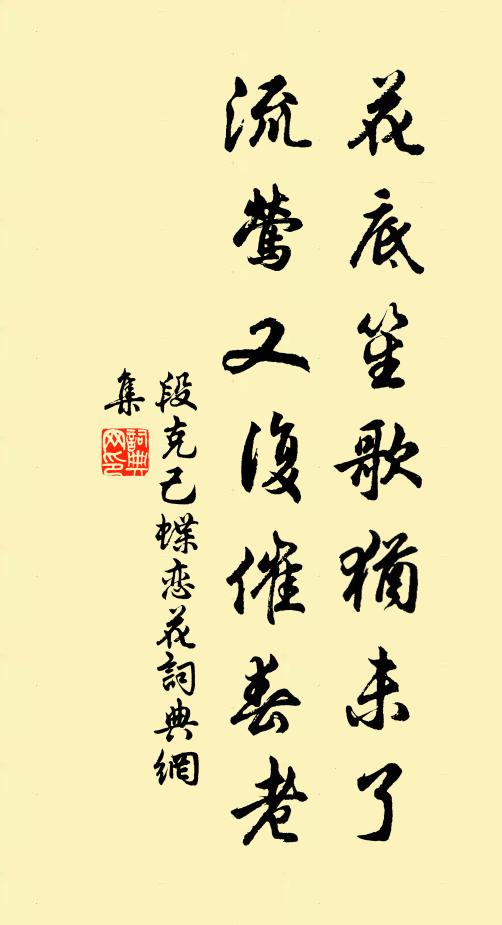 花底笙歌猶未了
流鶯又復催春老
段克己蝶恋花詞典網
集
詞典
网印